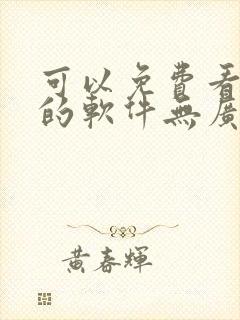 可以免費看
的軟件無廣
黃春輝